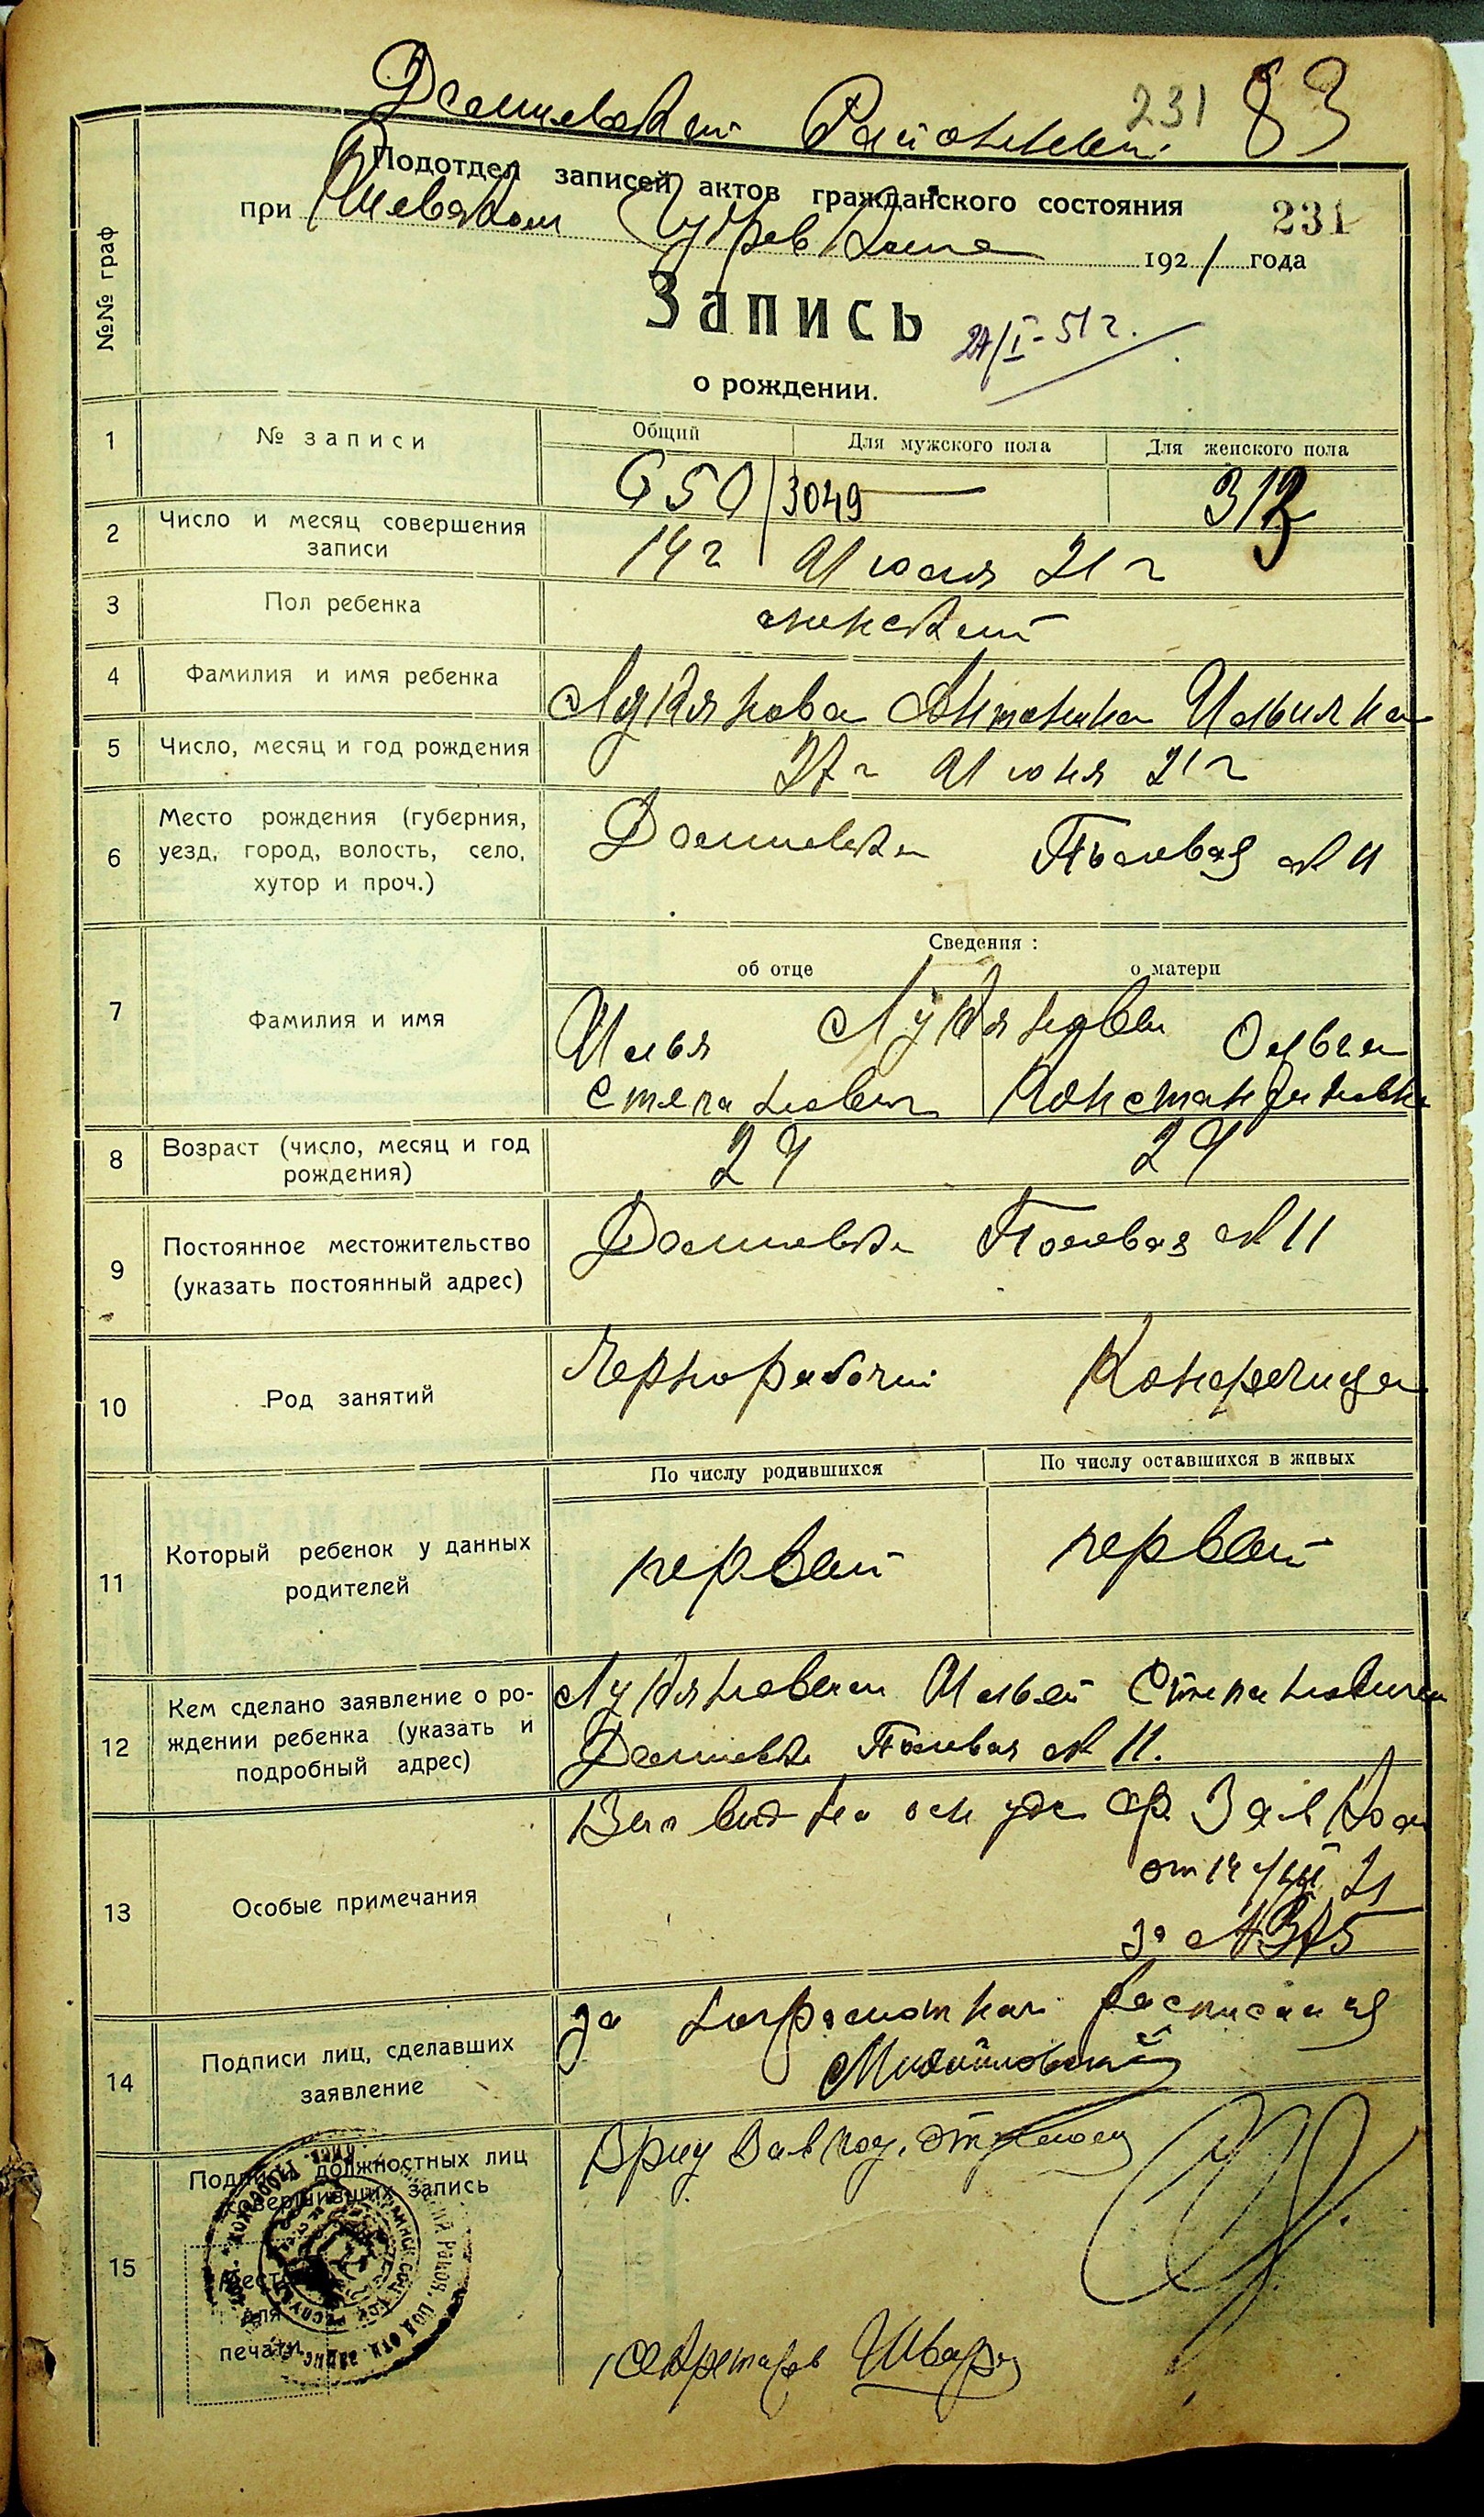 Демиевский Районный
231 83
Подотдел записей актов гражданского состояния
при Киевском Губревкоме 1921 года
231
Запись
27/I-51 г.
о рождении.
№№ граф
1 № записи Общий Для мужского пола Для женского пола
650/3049 — 313
2 Число и месяц совершения записи
14 г Июля 21 г
3 Пол ребенка женский
4 Фамилия и имя ребенка Лукьянова Антонина Ильинна
5 Число, месяц и год рождения 27 г Июня 21 г
6 Место рождения (губерния, уезд, город, волость, село, хутор и проч.)
Демиевка Полевая № 11
Сведения:
об отце о матери
7 Фамилия и имя
Лукьяновы
Илья Ольга
Степанович Константиновна
8 Возраст (число, месяц и год рождения) 24 24
9 Постоянное местожительство (указать постоянный адрес)
Демиевка Полевая № 11
10 Род занятий Чернорабочий
По числу родившихся По числу оставшихся в живых
11 Который ребенок у данных родителей
первый первый
12 Кем сделано заявление о рождении ребенка (указать и подробный адрес)
Лукьяновым Ильей Степановичем
Демиевка Полевая № 11.
13 Особые примечания
от 14/VII 21
за № 375
14 Подписи лиц, сделавших заявление
за неграмотного расписался
Михайловский
15 Подписи должностных лиц совершивших запись
Врид Завпод. отделом
Место для печати
секретарь Шварц